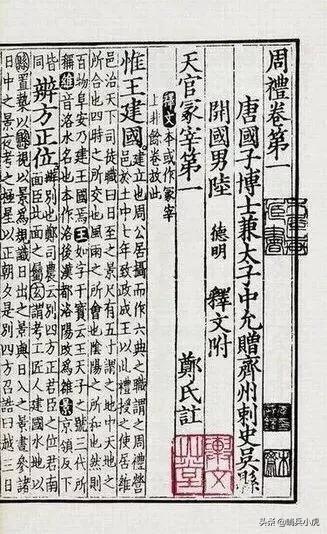 周禮卷第一
唐國子博士兼太子中允贈齊州刺史吳縣
開國男陸 德明 釋文附
天官冢宰第一 鄭氏註
釋文本或作冢宰
上非餘卷放此
惟王建國
建立也周公居攝而作六典之職謂之周禮營
邑於土中七年致政成王以此禮授之使居雒
邑治天下司徒職曰日至之景尺有五寸謂之地中天地之
所合也四時之所交也風雨之所會也陰陽之所和也然則
百物阜安乃建王國焉王如字干寶云王天子之號三代所
稱雒音洛水名也本作洛後漢都洛陽改為雒景京領反下
皆同
辨方正位
辨別也鄭司農云別四方正君臣之位君南
面臣北面之屬玄謂考工匠人建國水地以
縣置槷以縣視以景為規識日出之景與日入之景晝參諸
日中之景夜考之極星以正朝夕是別四方召誥曰越三日
头条 @哨兵小虎